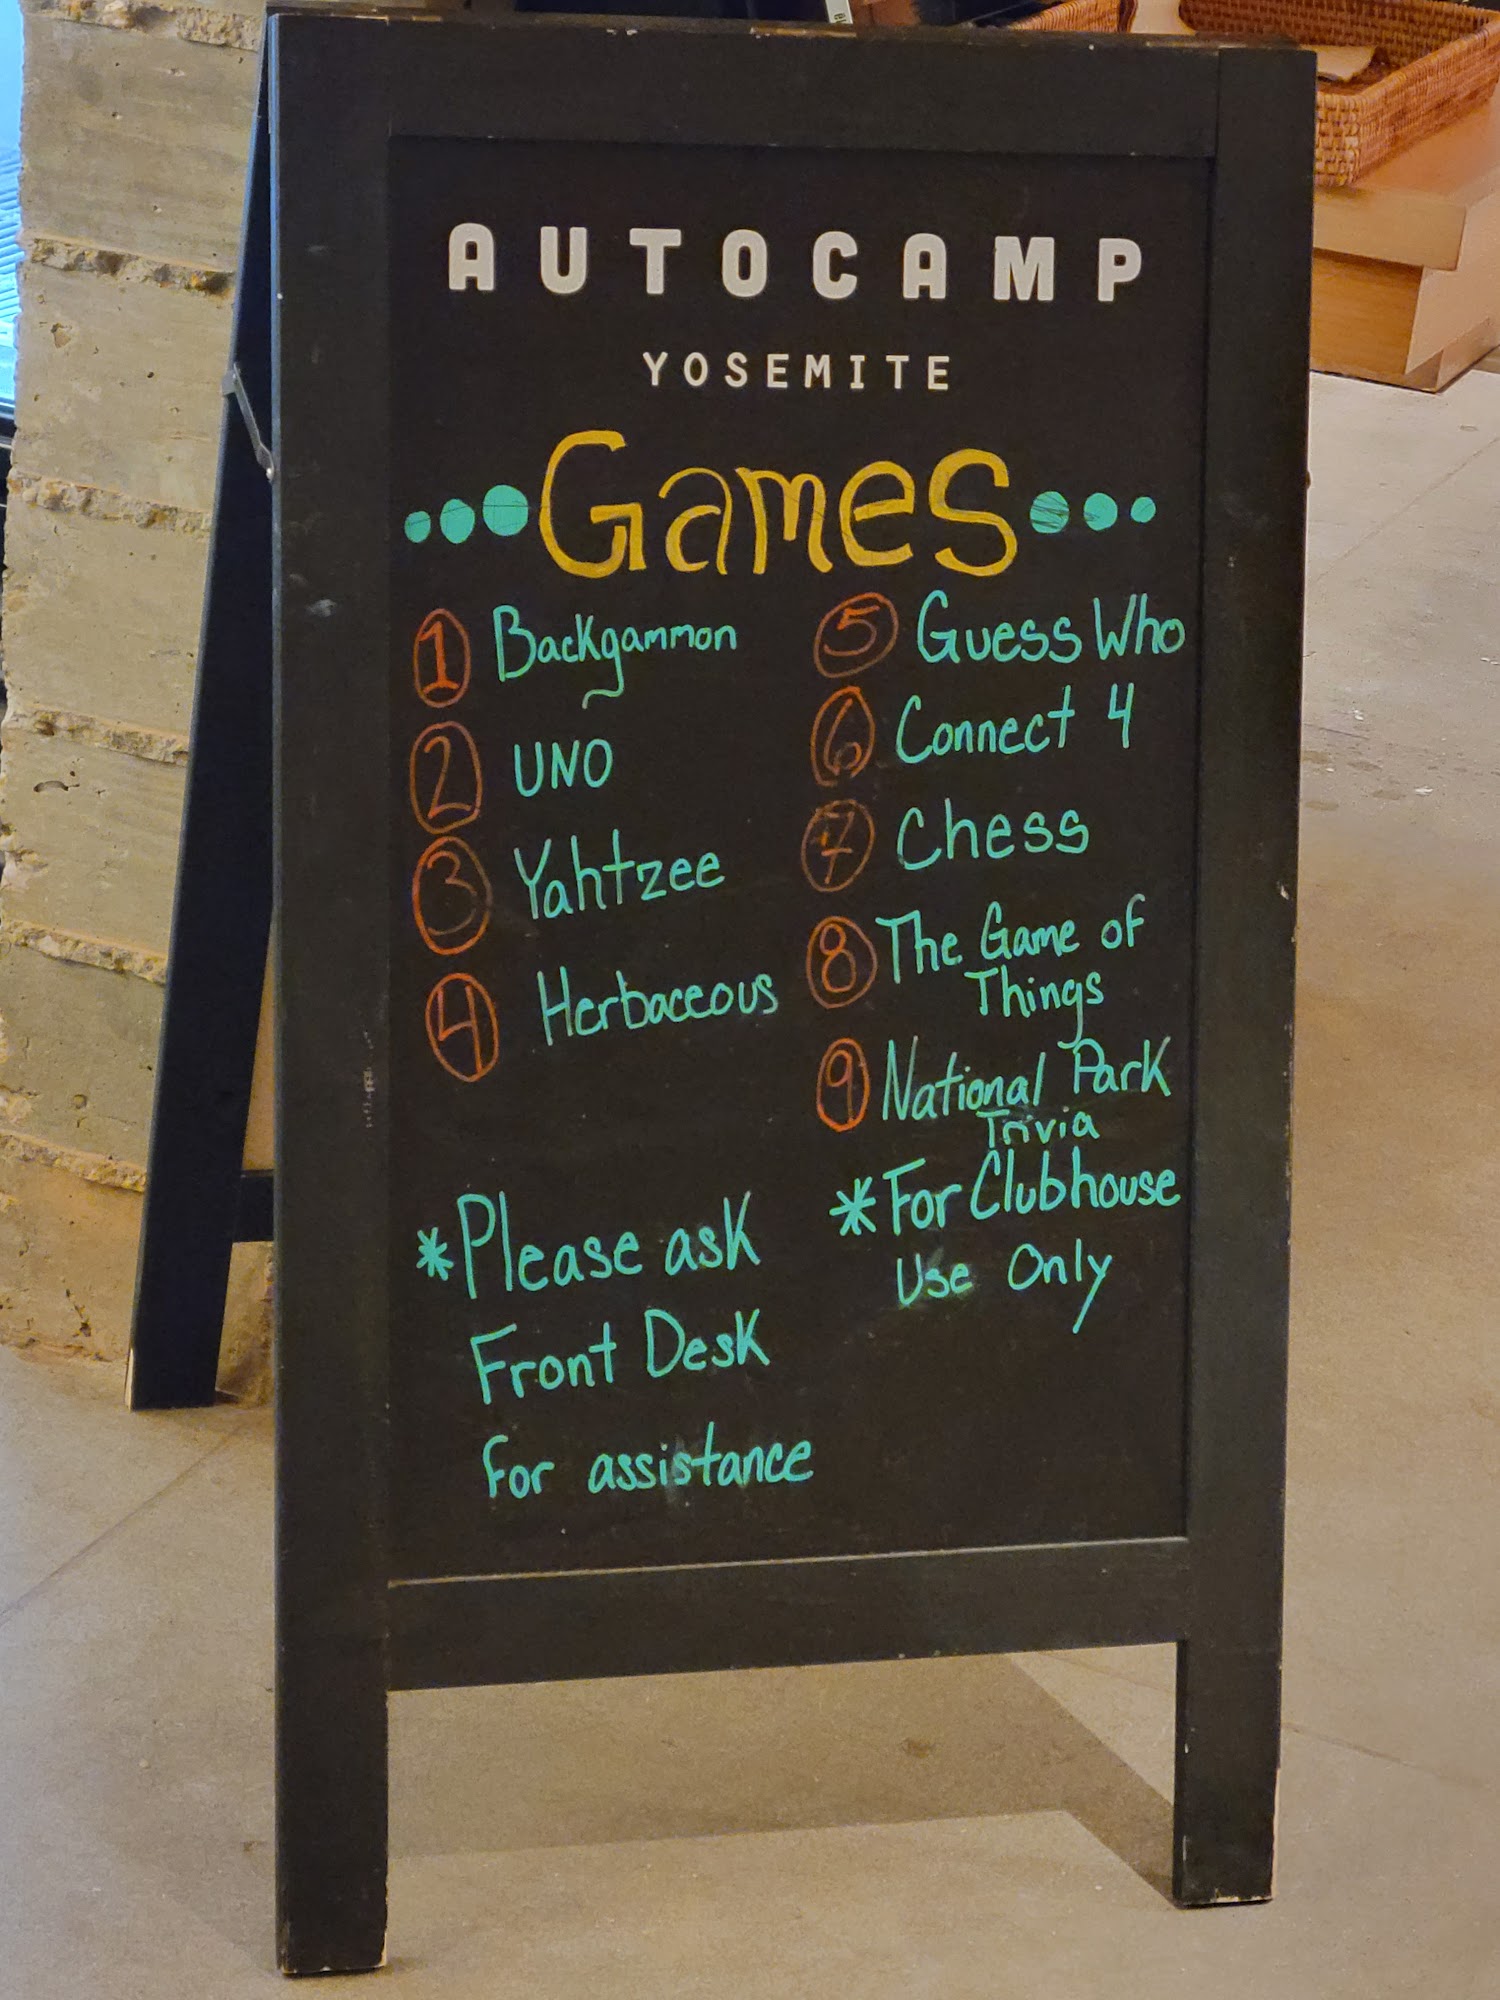 AUTOCAMP
YOSEMITE
Games
1 Backgammon
2 UNO
3 Yahtzee
4 Herbaceous
*Please ask
Front Desk
for assistance
5 Guess Who
6 Connect 4
7 Chess
8 The Game of
Things
9 National Park
Trivia
*For Clubhouse
Use Only